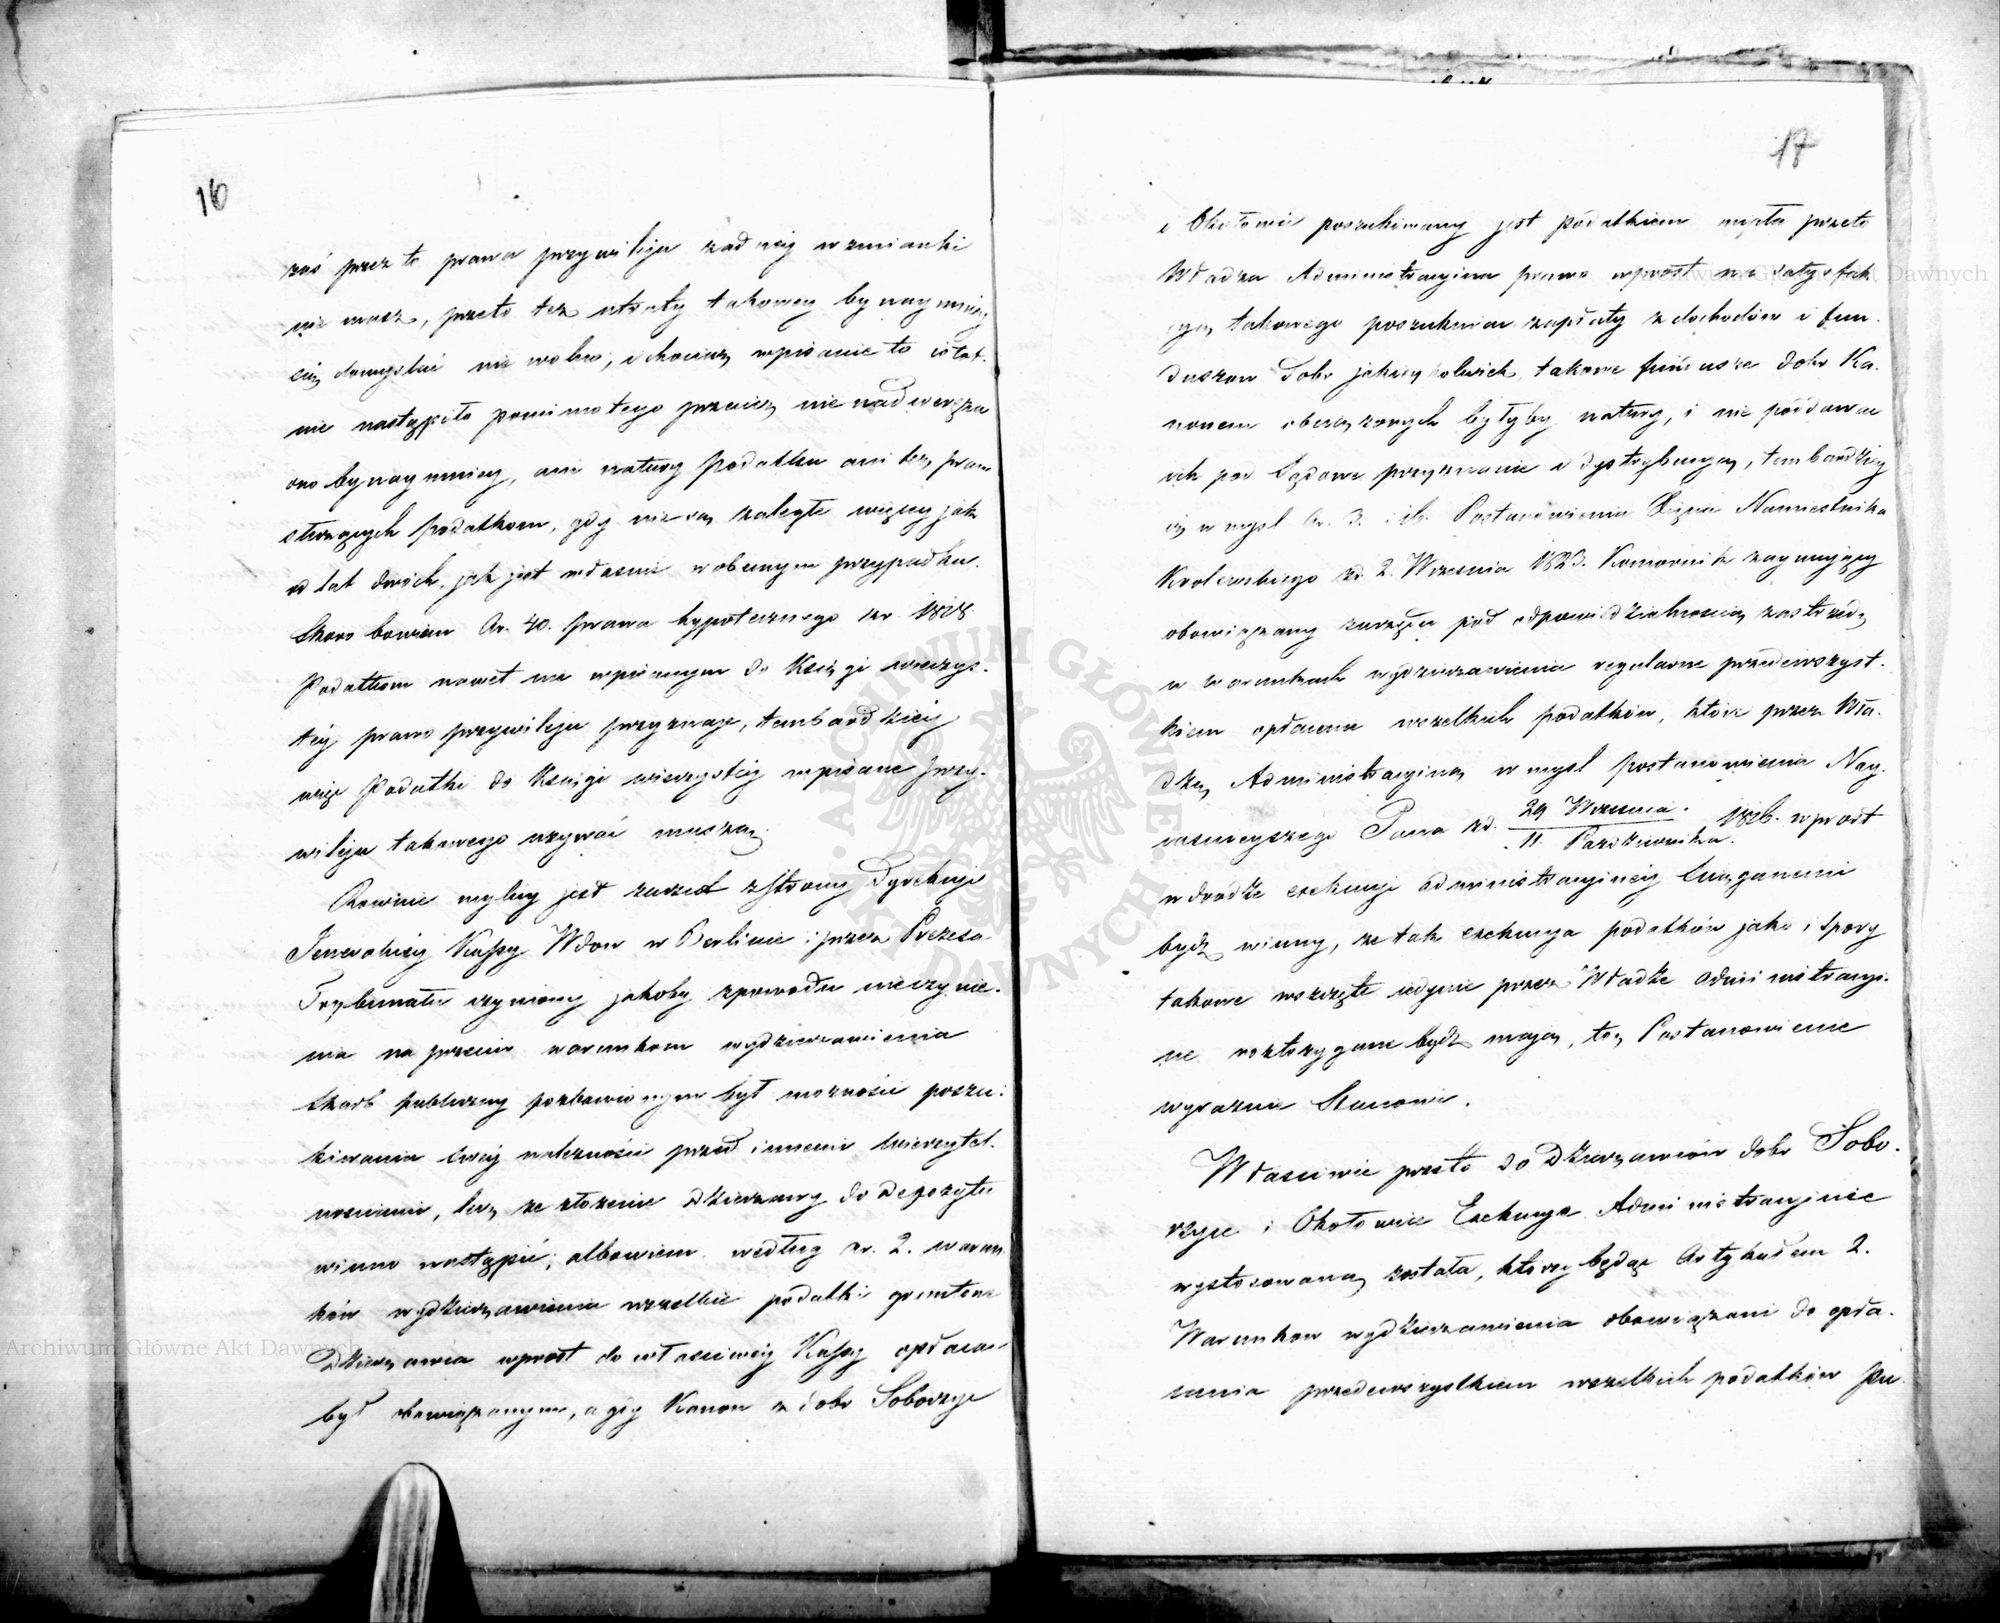 16
zaś przez to prawa przywileju żadnéj wzmianki
nie masz, przeto też utraty takowey bynaymniéy
domyślać nie wolno, i chociaż wpisanie to istot-
nie nastąpiło pomimo tego przecież nie nadweręża
ono bynaymniey, ani natury podatku ani też praw
służących podatkom, gdy nie są zaległe więcey jak
od lat dwóch, jak jest właśnie w obecnym przypadku.
Skoro bowiem Ar. 40. prawa hypotecznego zr. 1818
Podatkom nawet nie wpisanym do Księgi wieczys-
téj prawo przywileju przyznaje, tembardziéj
więc Podatki do Księgi wieczystéj wpisane przy-
wileju takowego używać muszą.
Równie mylny jest zarzut z strony Dyrekcyi
Jeneralnéj Kassy Wdow w Berlinie i przez Prezesa
Trybunału czyniony jakoby z powodu nieczynie-
nia na przeciw warunkom wydzierżawienia
Skarb publiczny pozbawionym był możności poszu-
kiwania swéj należności przed innemi wierzytel-
nościami, lecz że złożenie dzierżawy do depozytu
winno nastąpić; albowiem według ar. 2. warun-
ków wydzierżawienia wszelkie podatki gruntowe
Dzierżawca wprost do właściwéj Kassy opłacać
był obowiązanym, a gdy Kanon z dóbr Soborzyc
17
i Okołowic poszukiwany jest podatkiem miała przeto
Władza Administracyina prawo wprost na satysfak-
cyą takowego poszukiwać zapłaty z dochodów i fun-
duszow Dobr jakieykolwiek, takowe fundusze dobr Ka-
nonem obciążonych byłyby natury, i nie poddawać
ich pod Sądowe przyznanie i dystrybucyą, tembardziéj
iż w mysl Ar. 3. i 16. Postanowienia Xięcia Namiestnika
Krolewskiego zd. 2. Wrzesnia 1823. Komornik zaymujący
obowiązany zarazem pod odpowiedzialnością zastrzedz
w warunkach wydzierżawienia regularne przedewszyst-
kiem opłacanie wszelkich podatków, które przez Wła-
dzę Administracyiną w mysl postanowienia Nay-
jasnieyszego Pana zd. 29 Wrzesnia / 11. Pazdziernika. 1826. wprost
w drodze exekucyi administracyinéj ściąganemi
bydź winny, że tak exekucya podatków jako i Spory
takowe wszczęte jedynie przez Władze administracyi-
ne rozstrzygane bydź mają, to Postanowienie
wyraznie Stanowi.
Właściwie przeto do Dzierżawców dobr Sobo-
rzyc i Okołowic Exekucya Administracyjnie
wystosowaną została, którzy będąc Artykułem 2.
Warunkow wydzierżawienia obowiązani do opła-
cania przedewszystkiem wszelkich podatków Pu-
Archiwum Główne Akt Dawnych
Archiwum Główne Akt Dawnych
ARCHIWUM GŁÓWNE AKT DAWNYCH